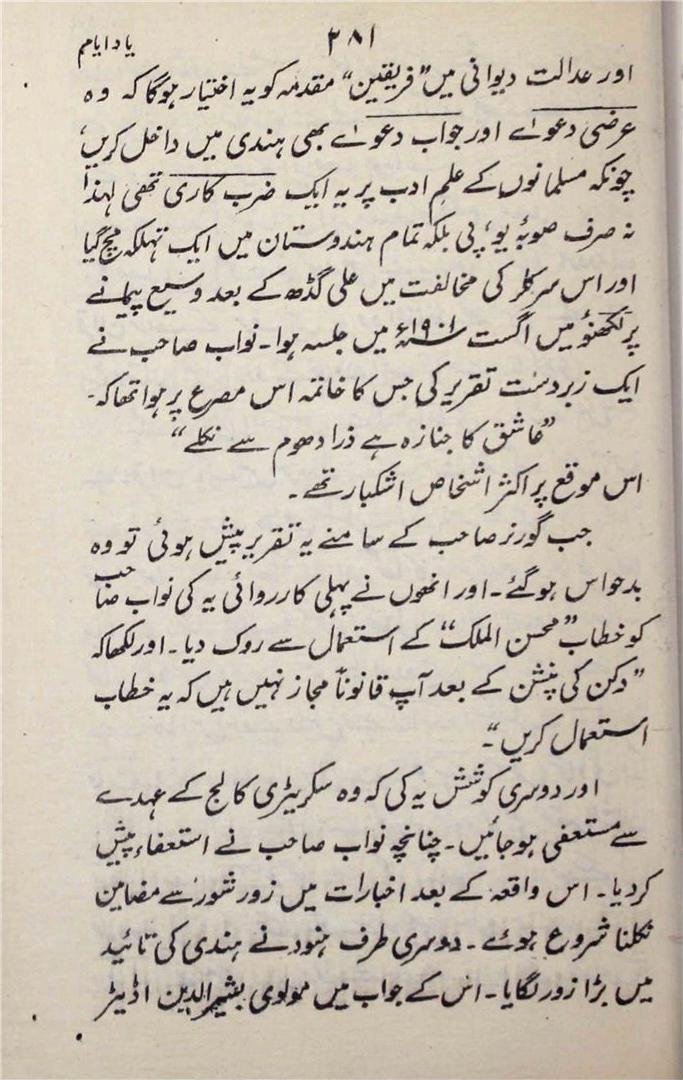 ۲۸۱
یاد ایام
اور عدالت دیوانی میں "فریقین" مقدمہ کو یہ اختیار ہوگا کہ وہ
عرضی دعوےٰ اور جواب دعوےٰ بھی ہندی میں داخل کریں،
چونکہ مسلمانوں کے علم ادب پر یہ ایک ضرب کاری تھی لہذا
نہ صرف صوبۂ یو، پی بلکہ تمام ہندوستان میں ایک تہلکہ مچ گیا
اور اس سرکلر کی مخالفت میں علی گڈھ کے بعد وسیع پیمانے
پر لکھنؤ میں اگست سنہ ۱۹۰۱ء میں جلسہ ہوا۔ نواب صاحب نے
ایک زبردست تقریر کی جس کا خاتمہ اس مصرع پر ہوا تھا کہ۔
"عاشق کا جنازہ ہے ذرا دھوم سے نکلے"
اس موقع پر اکثر اشخاص اشکبار تھے۔
جب گورنر صاحب کے سامنے یہ تقریر پیش ہوئی تو وہ
بدحواس ہو گئے۔ اور انھوں نے پہلی کارروائی یہ کی نواب صاحب
کو خطاب "محسن الملک" کے استعمال سے روک دیا۔ اور لکھا کہ
"دکن کی پنشن کے بعد آپ قانوناً مجاز نہیں ہیں کہ یہ خطاب
استعمال کریں"۔
اور دوسری کوشش یہ کی کہ وہ سکریٹری کالج کے عہدے
سے مستعفی ہو جائیں۔ چنانچہ نواب صاحب نے استعفاء پیش
کر دیا۔ اس واقعہ کے بعد اخبارات میں زور شور سے مضامین
نکلنا شروع ہوئے۔ دوسری طرف ہنود نے ہندی کی تائید
میں بڑا زور لگایا۔ اس کے جواب میں مولوی بشیرالدین اڈیٹر